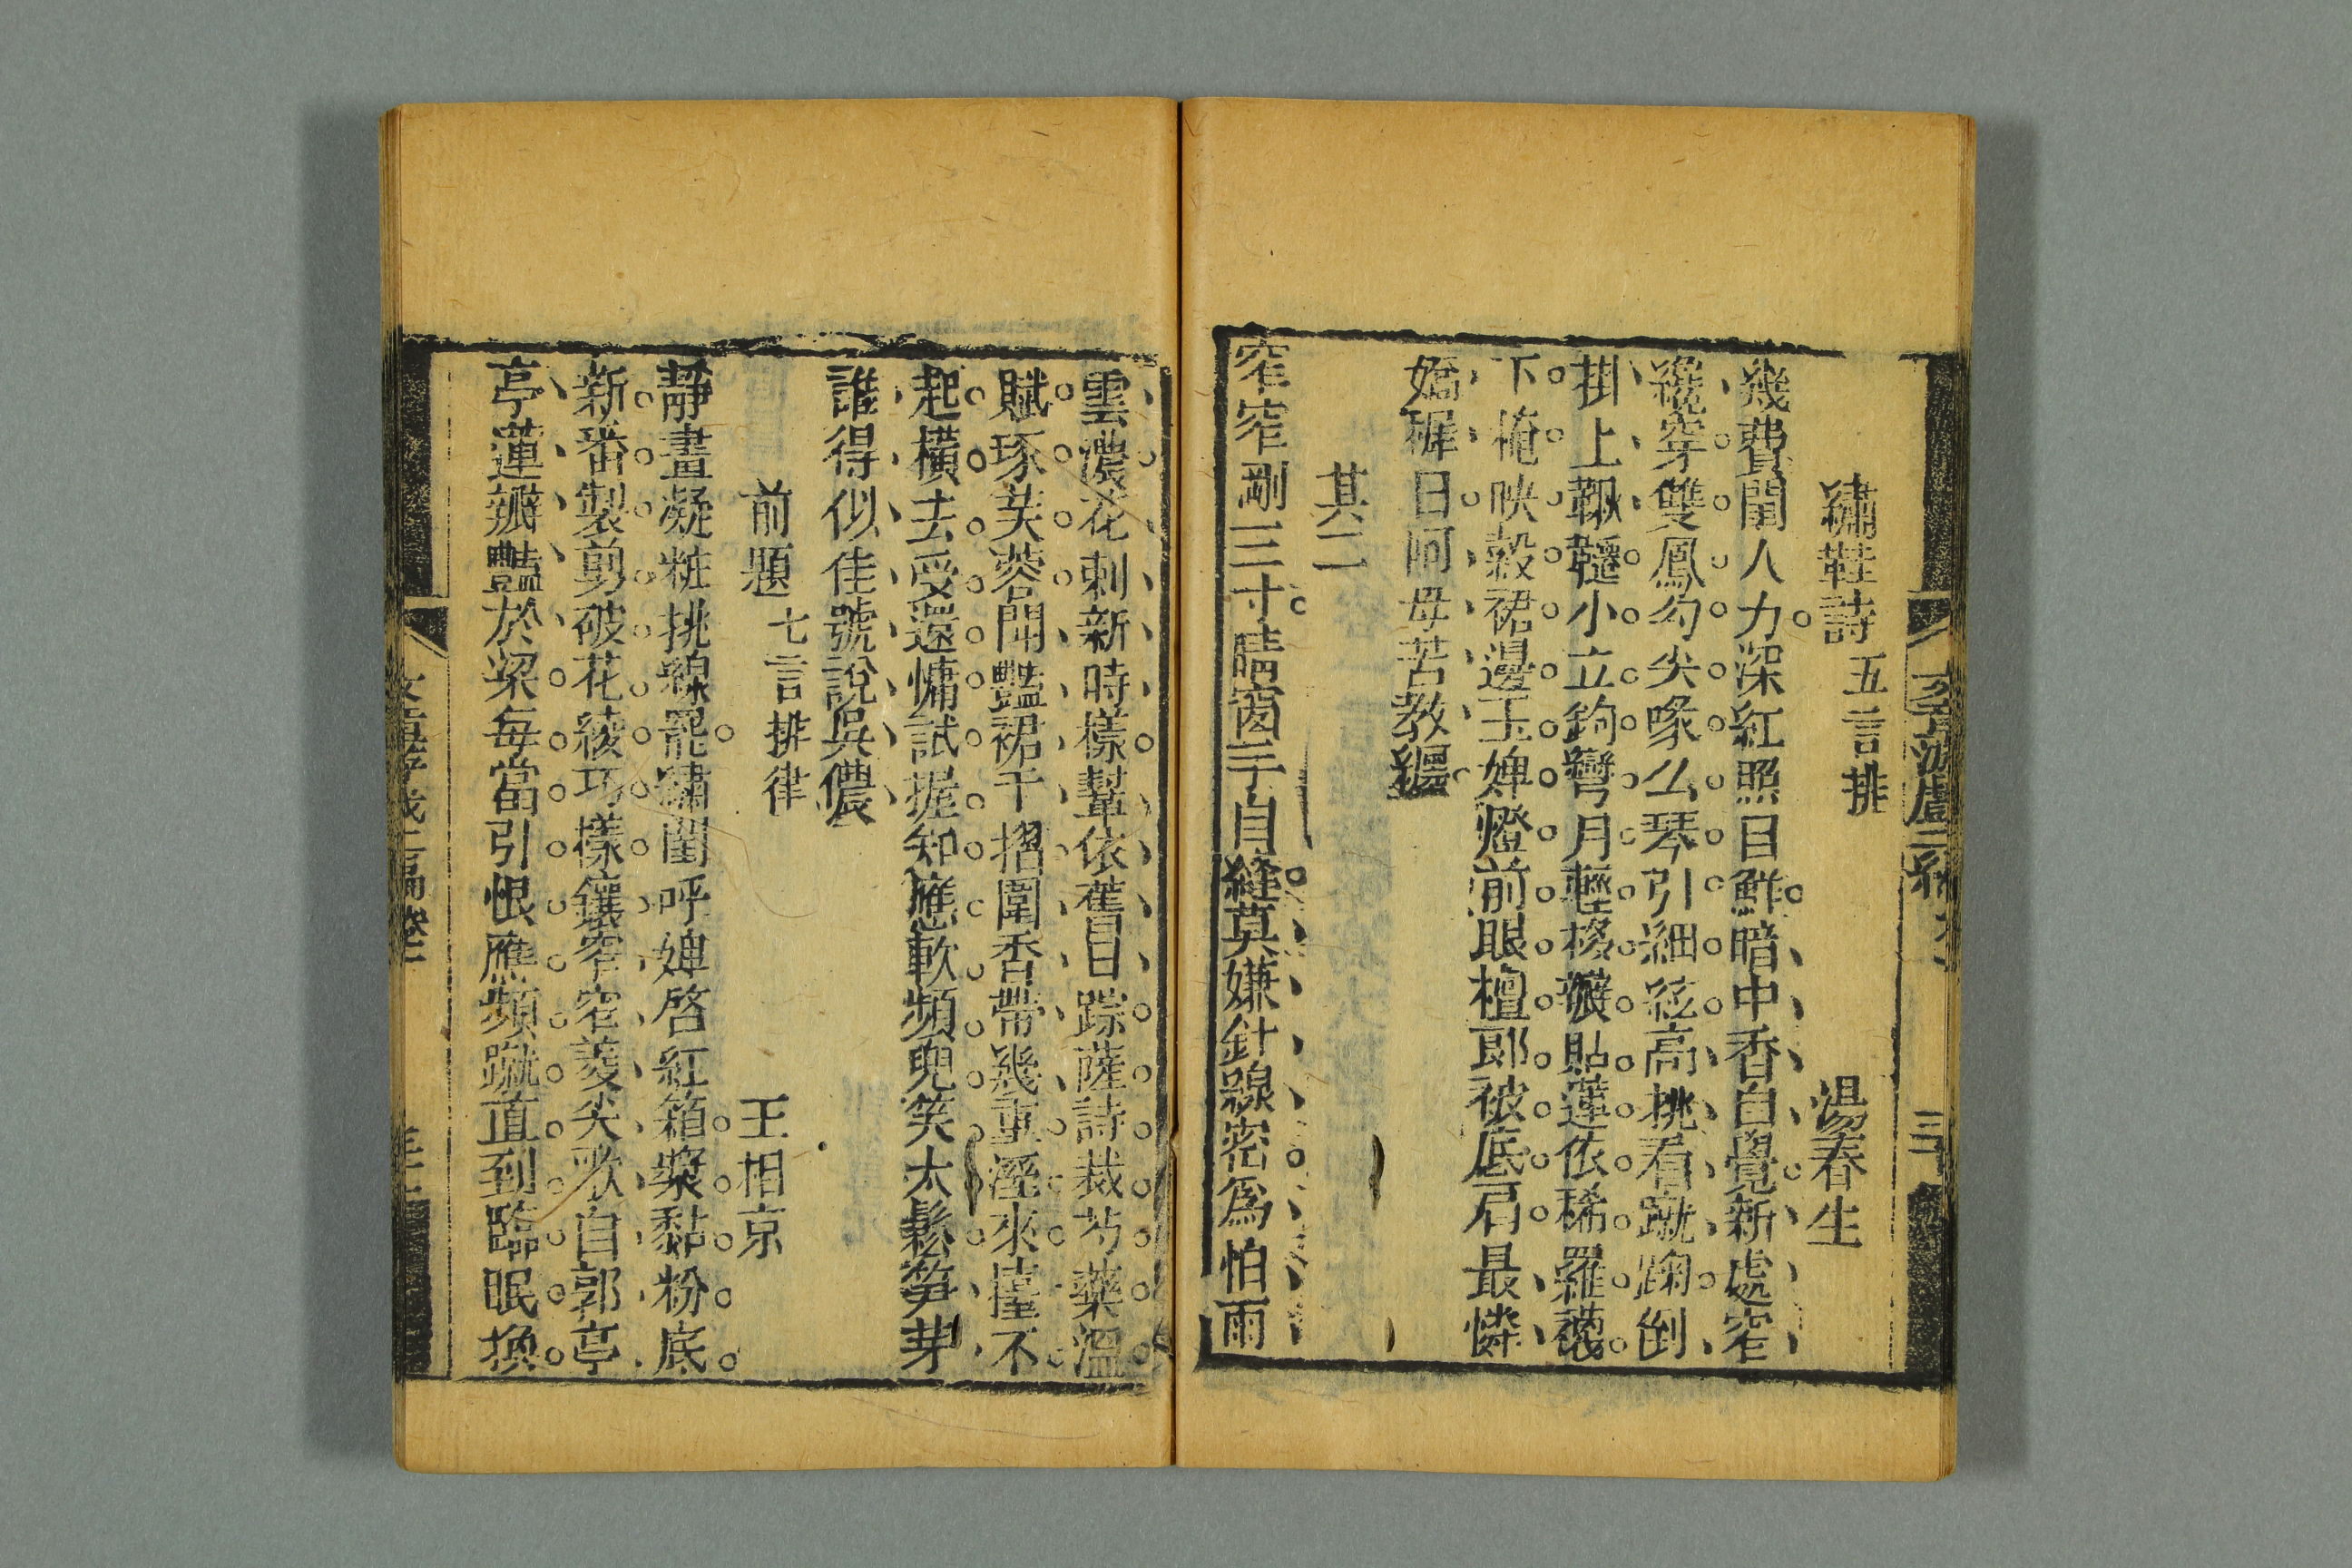 繡鞋詩 五言排 湯春生
幾費閨人力深紅照目鮮暗中香自覺新處窄
纔穿雙鳳勾尖喙么琴引細絃高挑看蹴踘倒
掛上鞦韆小立鉤彎月輕移瓣貼蓮依稀羅襪
下掩映縠裙邊玉婢燈前眼檀郎被底肩最憐
嬌穉日阿母苦教纏
其二
窄窄剛三寸晴窗手自縫莫嫌針線密爲怕雨
雲濃花刺新時樣幫依舊日踪薩詩裁芍藥溫
賦琢芙蓉開豔裙千摺圍香帶幾重溼來擡不
起橫去受還慵試握知應軟頻兜笑太鬆筍芽
誰得似佳號說吳儂
前題 七言排律 王相京
靜晝凝粧挑線罷繡閨呼婢啓紅箱漿黏粉底
新番製剪破花綾巧樣鑲窄窄菱尖歌自郭亭
亭蓮瓣豔於梁每當引恨應頻蹴直到臨眠換